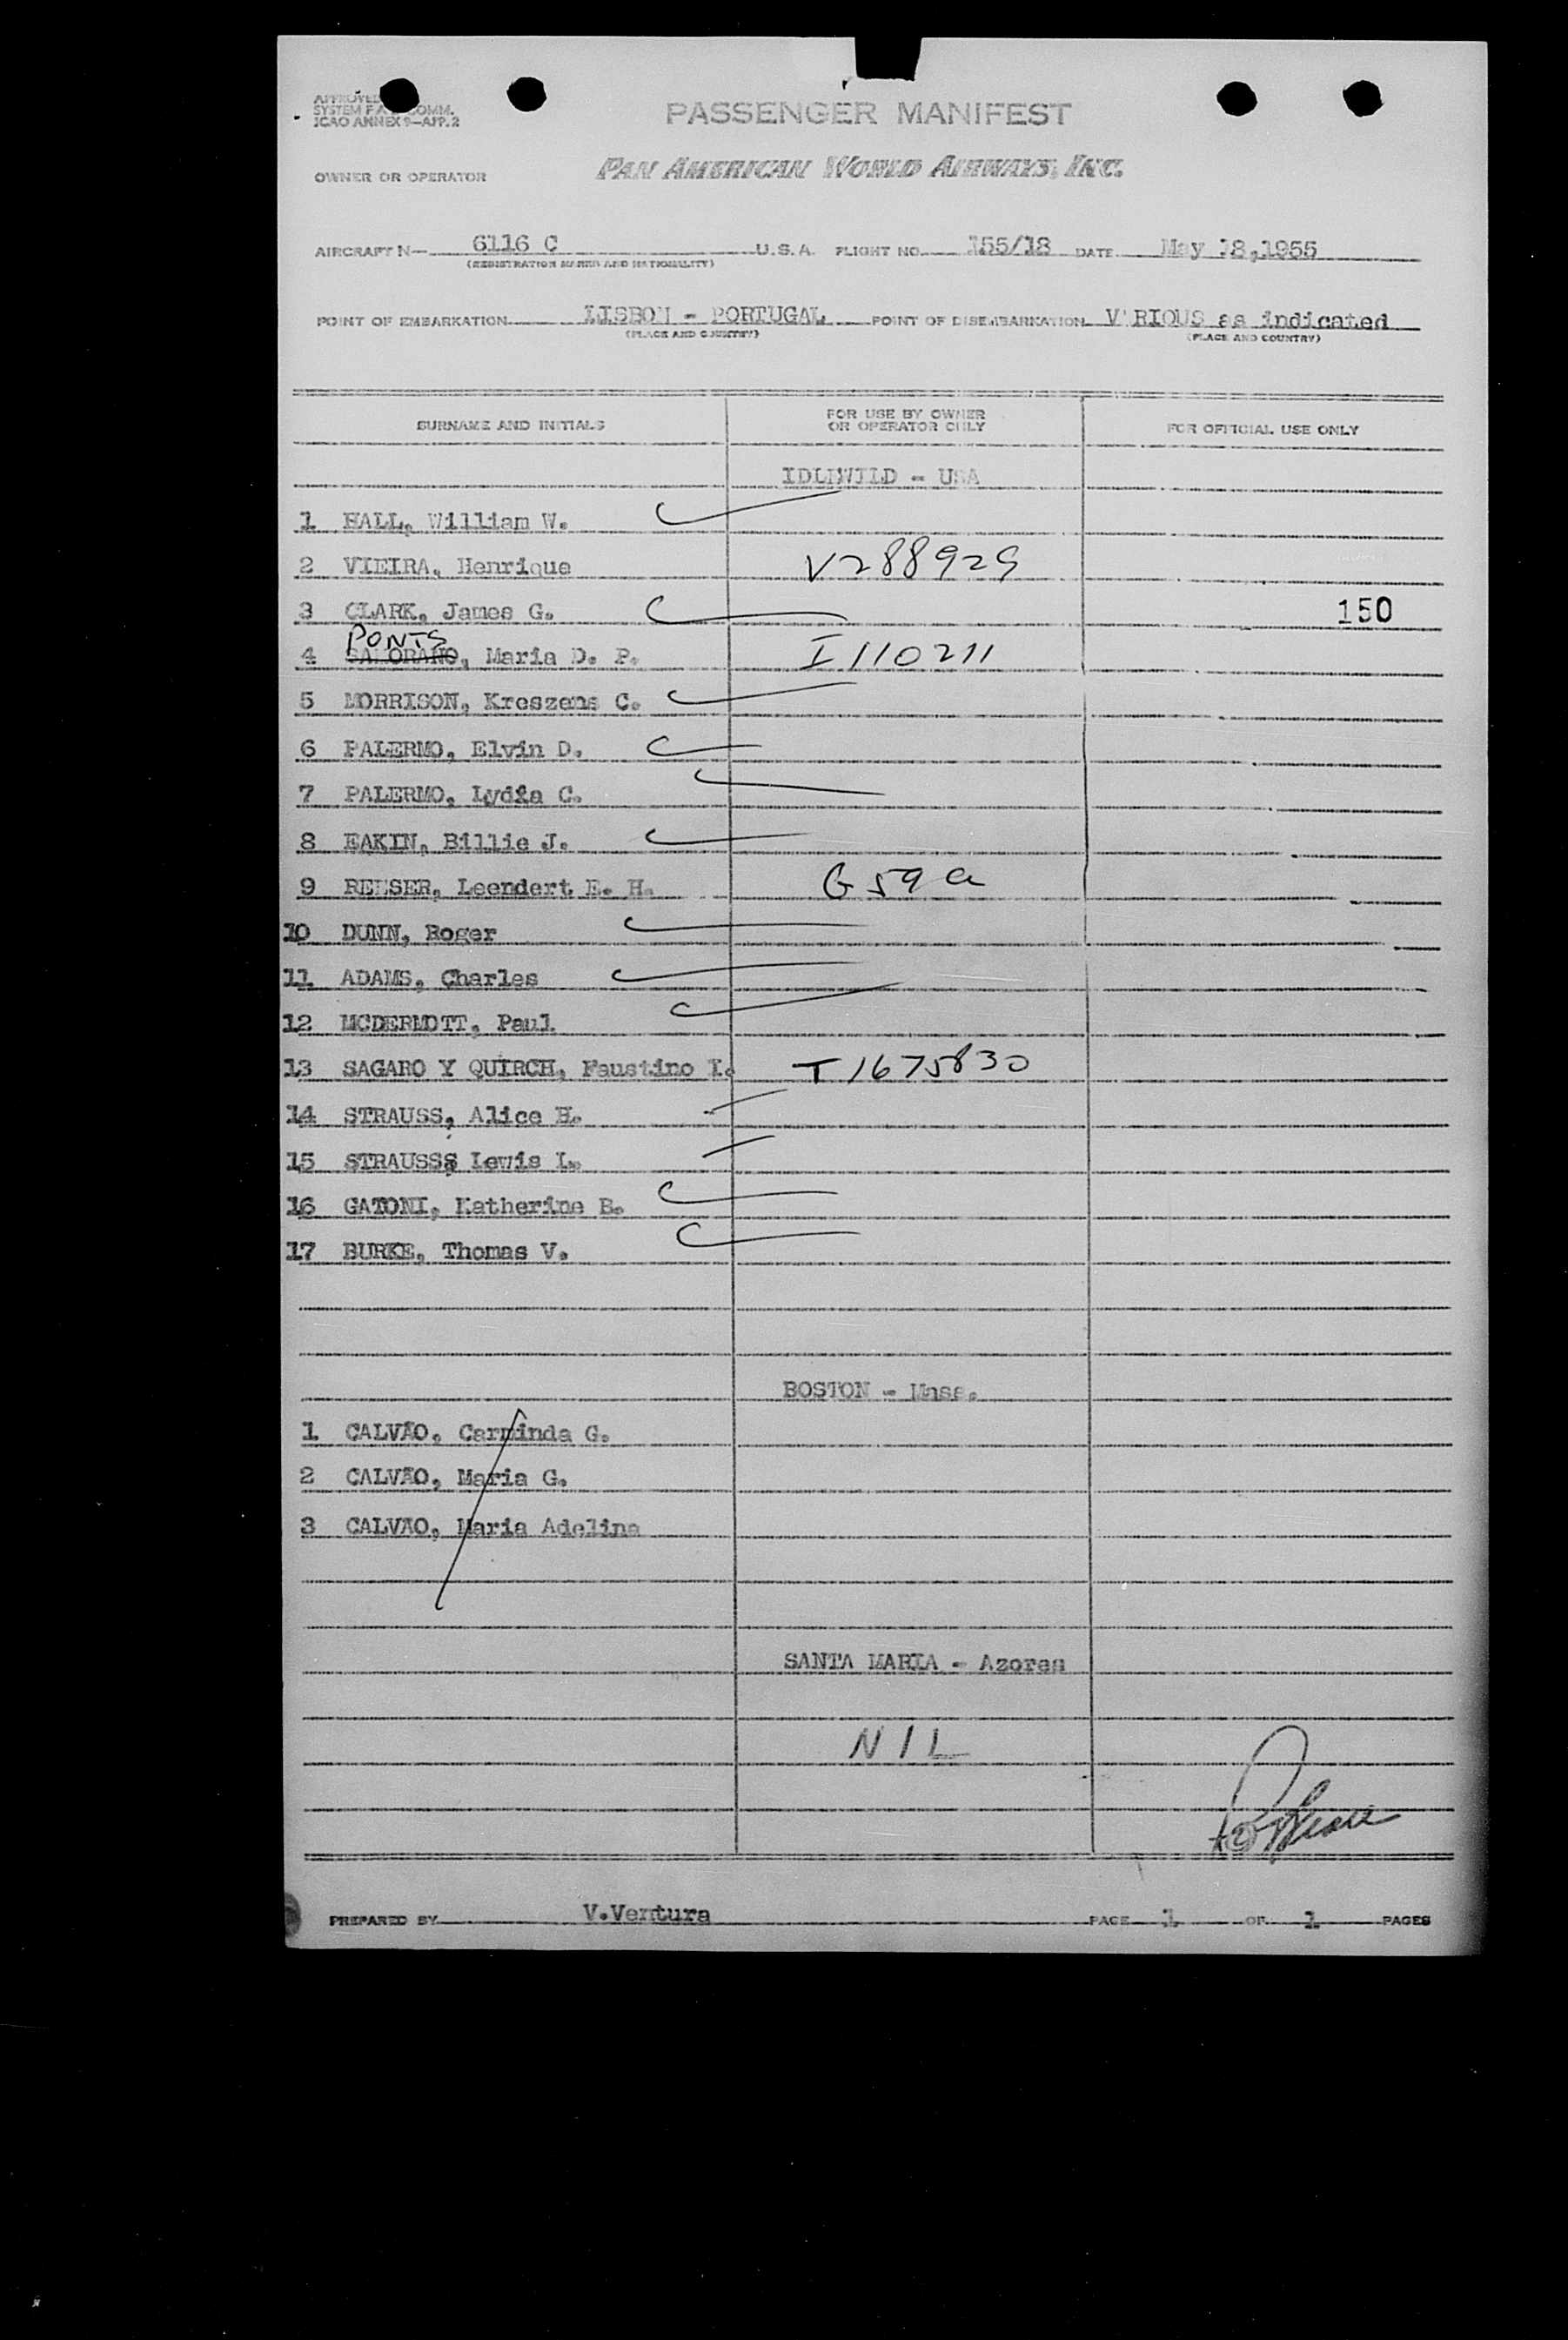 APPROVED
SYSTEM F A COMM.
ICAO ANNEX 9—APP. 2
PASSENGER MANIFEST
OWNER OR OPERATOR PAN AMERICAN WORLD AIRWAYS, INC.
AIRCRAFT N— 6116 C U.S.A. FLIGHT NO. 155/18 DATE May 18,1955
(REGISTRATION MARKS AND NATIONALITY)
POINT OF EMBARKATION LISBON - PORTUGAL POINT OF DISEMBARKATION V RIOUS as indicated
(PLACE AND COUNTRY) (PLACE AND COUNTRY)
SURNAME AND INITIALS FOR USE BY OWNER OR OPERATOR ONLY FOR OFFICIAL USE ONLY
IDLEWILD - USA
1 HALL, William W.
2 VIEIRA, Henrique V288929
3 CLARK, James G. 150
PONTS
4 SALORANO, Maria D. P. I110211
5 MORRISON, Kreszens C.
6 PALERMO, Elvin D.
7 PALERMO, Lydia C.
8 EAKIN, Billie J.
9 REESER, Leendert E. H. G59a
10 DUNN, Roger
11 ADAMS, Charles
12 MCDERMOTT, Paul
13 SAGARO Y QUIRCH, Faustino I. T1675830
14 STRAUSS, Alice H.
15 STRAUSSS Lewis L.
16 GATONI, Katherine B.
17 BURKE, Thomas V.
BOSTON - Mass.
1 CALVÃO, Carminda G.
2 CALVÃO, Maria G.
3 CALVAO, Maria Adelina
SANTA MARIA - Azores
NIL
PREPARED BY V.Ventura PAGE 1 OF 1 PAGES